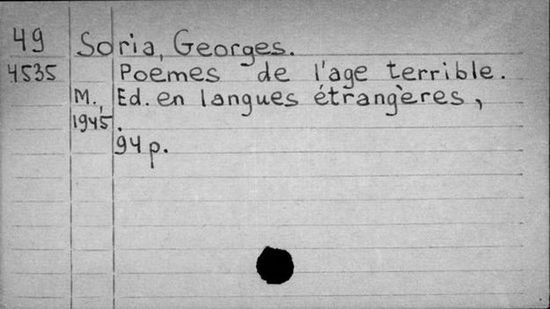 49 Soria, Georges.
4535 Poèmes de l'age terrible.
M., Ed. en langues étrangères,
1945.
94 p.